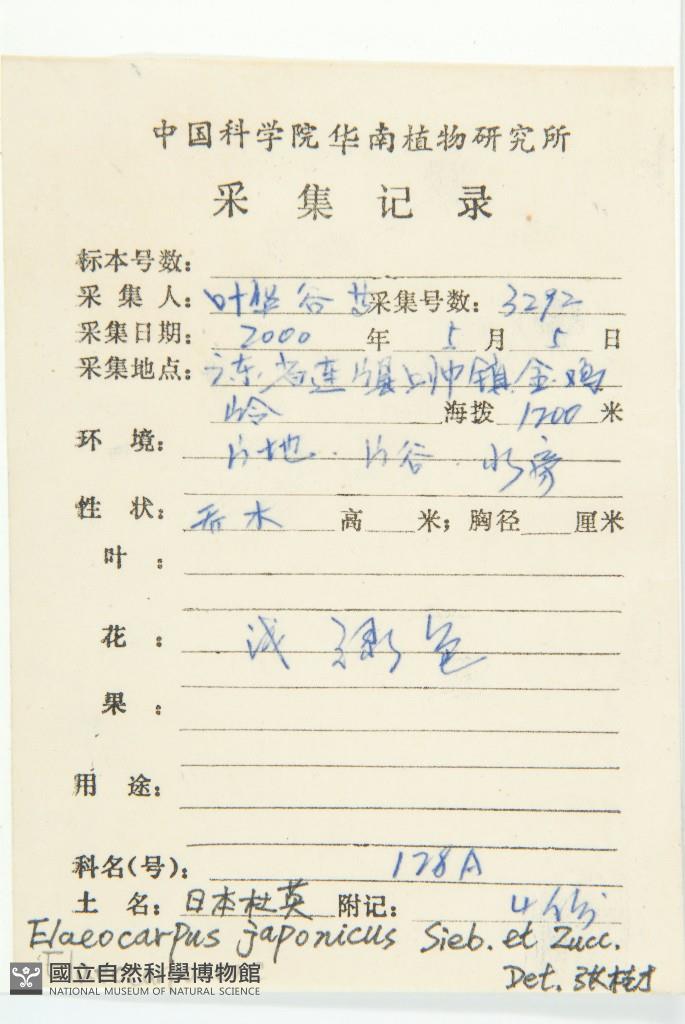 中国科学院华南植物研究所
采集记录
标本号数：
采集人：叶华谷 采集号数：3292
采集日期：2000年5月5日
采集地点：广东省连县上帅镇金鸡
岭 海拨 1200 米
环境：片地．片谷．水旁
性状：乔木 高 米；胸径 厘米
叶：
花：浅绿色
果：
用途：
科名(号)：128A
土名：日本杜英 附记：4份
Elaeocarpus japonicus Sieb. et Zucc.
Det. 张桂才
國立自然科學博物館
NATIONAL MUSEUM OF NATURAL SCIENCE